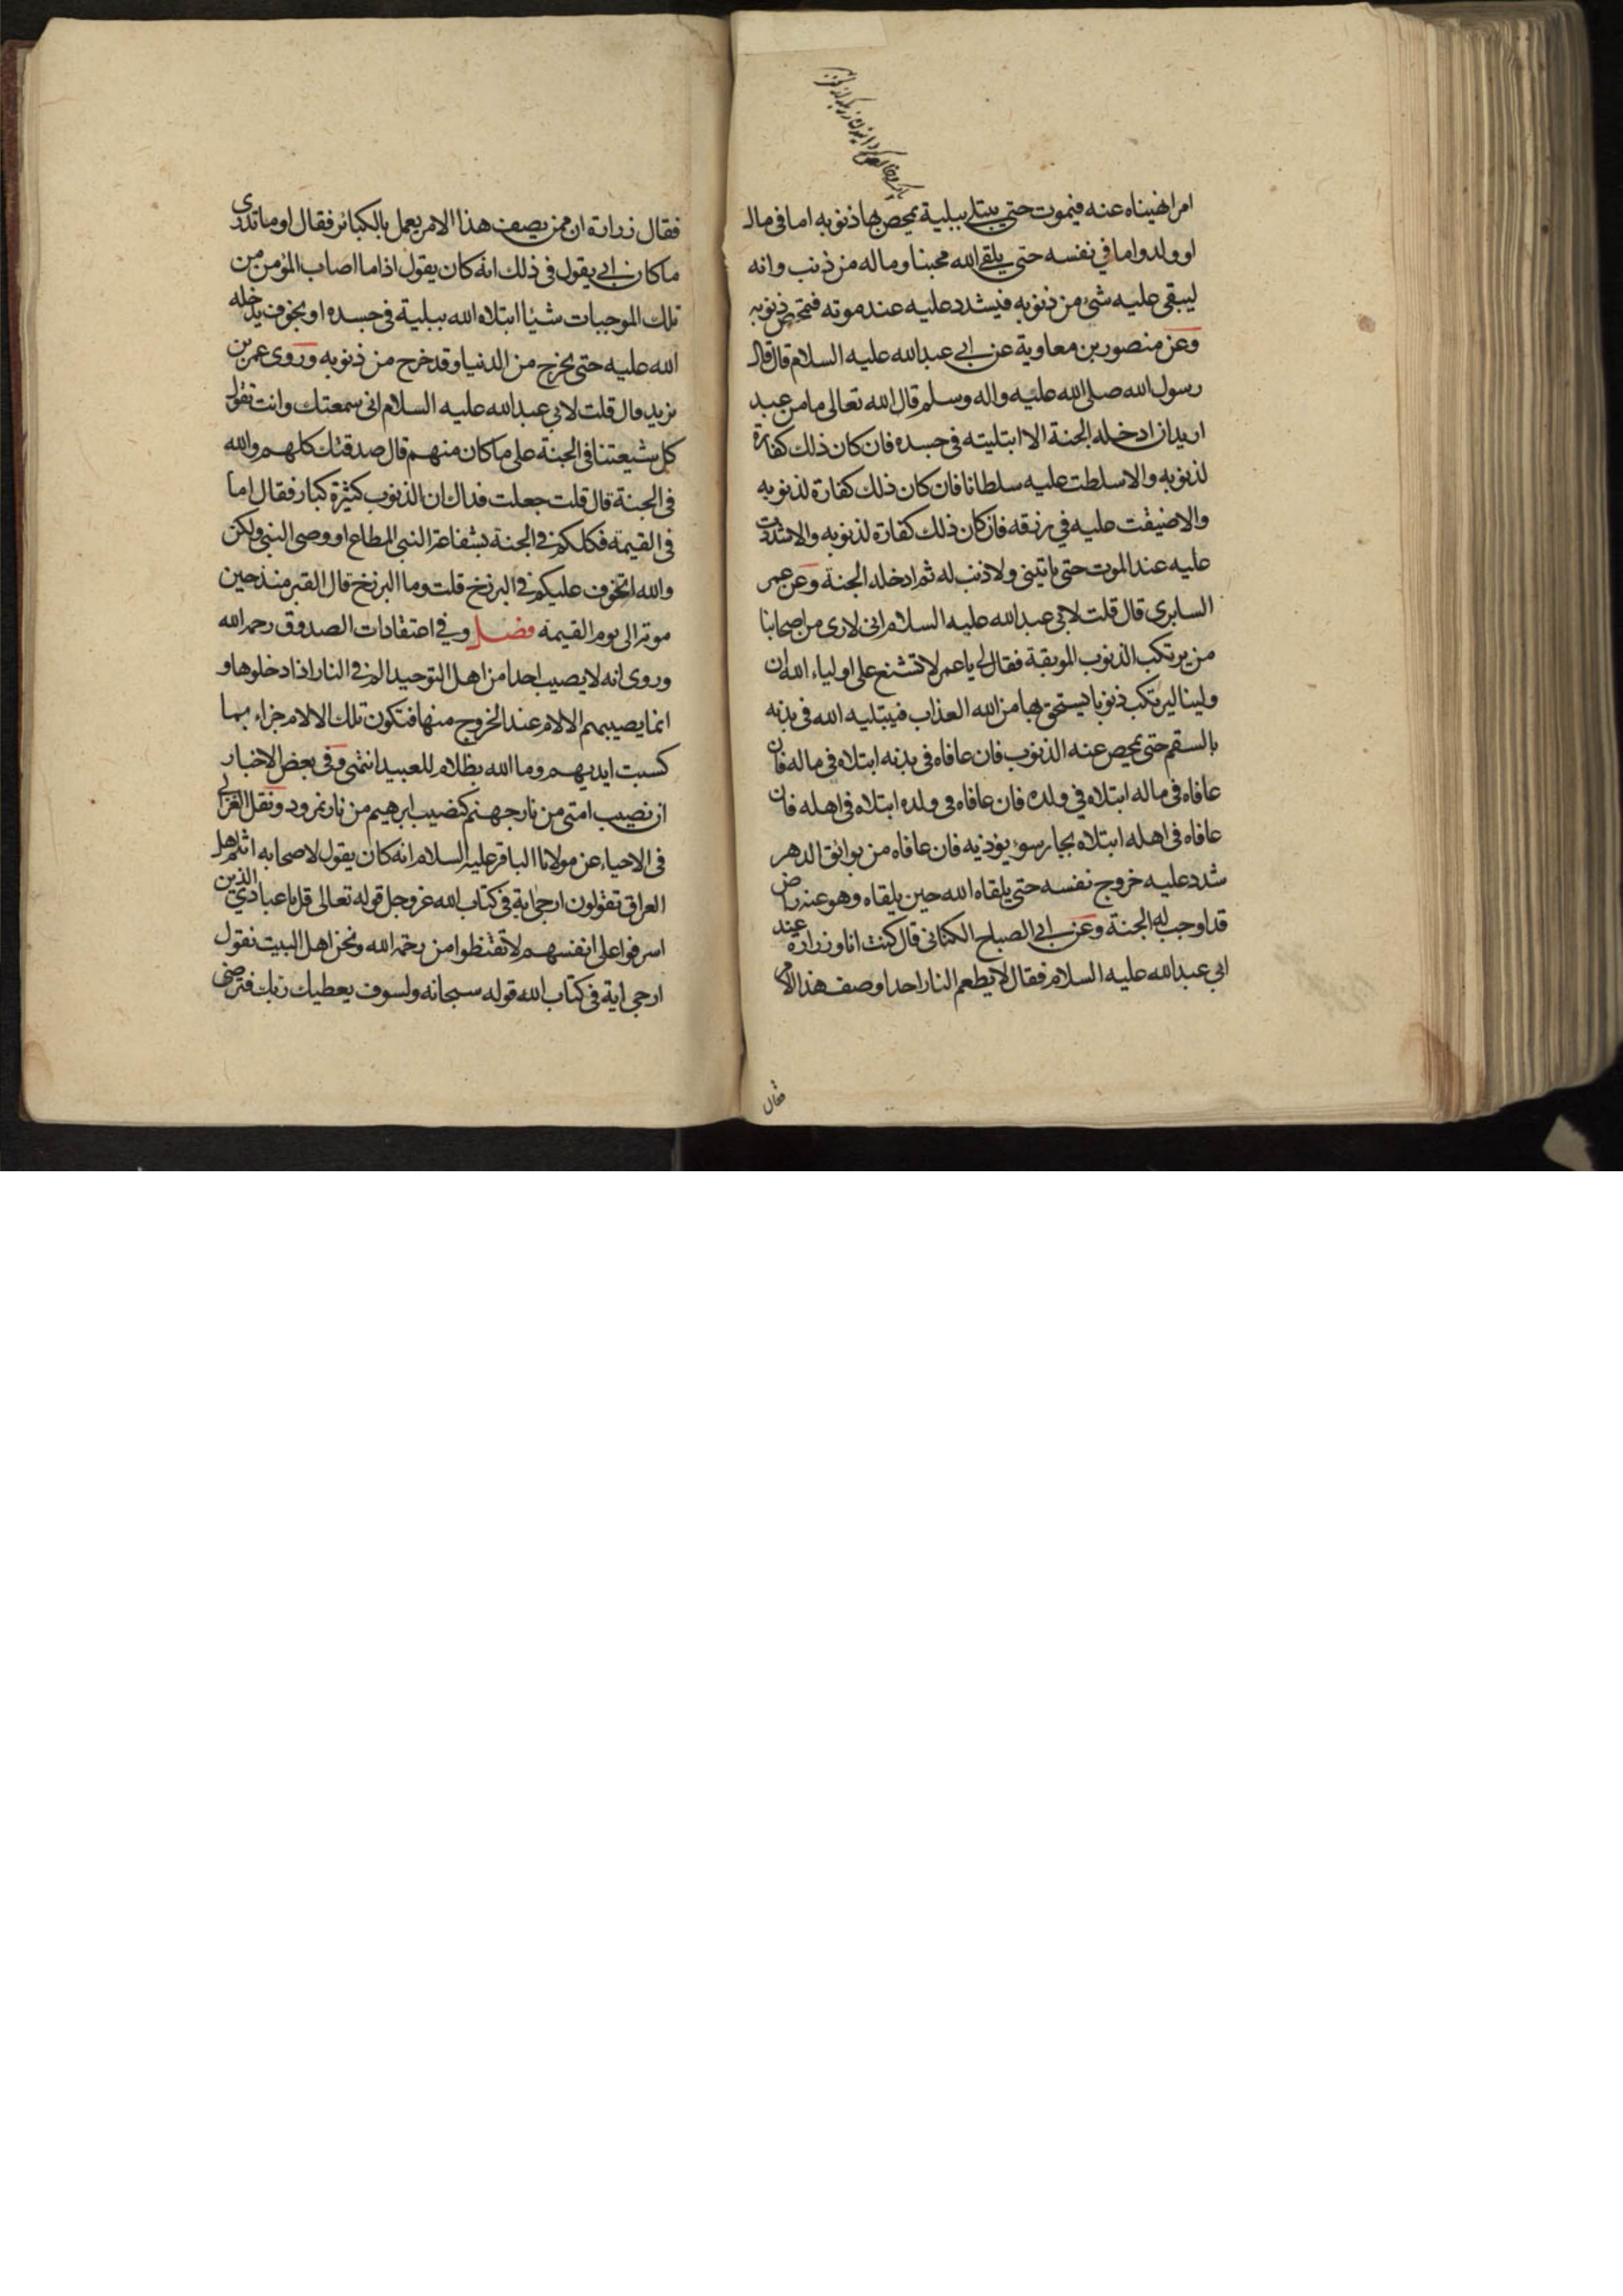 امرا نهيناه عنه فيموت حتى يبتلى ببلية يمحص بها ذنوبه اما فى مال
او ولد واما في نفسه حتى يلقى الله محبنا وماله من ذنب وانه
ليبقى عليه شئ من ذنوبه فيشدد عليه عند موته فتمحص ذنوبه
وعن منصور بن معاوية عن ابى عبدالله عليه السلام قال قال
رسول الله صلى الله عليه واله وسلم قال الله تعالى ما من عبد
اريد ان ادخله الجنة الا ابتليته فى جسده فان كان ذلك كفارة
لذنوبه والا سلطت عليه سلطانا فان كان ذلك كفارة لذنوبه
والا ضيقت عليه في رزقه فان كان ذلك كفارة لذنوبه والا شددت
عليه عند الموت حتى ياتينى ولا ذنب له ثم ادخله الجنة وعن عمر
السابرى قال قلت لابى عبدالله عليه السلام انى لارى من اصحابنا
من يرتكب الذنوب الموبقة فقال لى يا عمر لا تشنع على اولياء الله ان
ولينا ليرتكب ذنوبا يستحق بها من الله العذاب فيبتليه الله فى بدنه
بالسقم حتى يمحص عنه الذنوب فان عافاه فى بدنه ابتلاه فى ماله فان
عافاه فى ماله ابتلاه في ولده فان عافاه فى ولده ابتلاه فى اهله فان
عافاه فى اهله ابتلاه بجار سوء يوذيه فان عافاه من بوائق الدهر
شدد عليه خروج نفسه حتى يلقاه الله حين يلقاه وهو عنه راض
قد اوجب له الجنة وعن ابى الصباح الكنانى قال كنت انا وزرارة عند
ابي عبدالله عليه السلام فقال لا يطعم النار احدا وصف هذا الامر
فقال
فقال زرارة ان ممن يصف هذا الامر يعمل بالكبائر فقال او ما تدرى
ما كان ابى يقول فى ذلك انه كان يقول اذا ما اصاب المؤمن من
تلك الموجبات شيئا ابتلاه الله ببلية فى جسده او بخوف يدخله
الله عليه حتى يخرج من الدنيا وقد خرج من ذنوبه وروى عمر بن
يزيد قال قلت لابي عبدالله عليه السلام انى سمعتك وانت تقول
كل شيعتنا فى الجنة على ما كان منهم قال صدقتك كلهم والله
فى الجنة قال قلت جعلت فداك ان الذنوب كثيرة كبار فقال اما
فى القيمة فكلكم فى الجنة بشفاعة النبى المطاع او وصى النبى ولكن
والله اتخوف عليكم فى البرزخ قلت وما البرزخ قال القبر منذ حين
موته الى يوم القيمة فصل وفي اعتقادات الصدوق رحمه الله
وروى انه لا يصيب احدا من اهل التوحيد الم فى النار اذا دخلوها و
انما يصيبهم الالام عند الخروج منها فتكون تلك الالام جزاء بما
كسبت ايديهم وما الله بظلام للعبيد انتهى وفى بعض الاخبار
ان نصيب امتى من نار جهنم كنصيب ابرهيم من نار نمرود ونقل الغزالى
فى الاحياء عن مولانا الباقر عليه السلام انه كان يقول لاصحابه انتم اهل
العراق تقولون ارجى اية فى كتاب الله عز وجل قوله تعالى قل يا عبادي الذين
اسرفوا على انفسهم لا تقنطوا من رحمة الله ونحن اهل البيت نقول
ارجى اية فى كتاب الله قوله سبحانه ولسوف يعطيك ربك فترضى